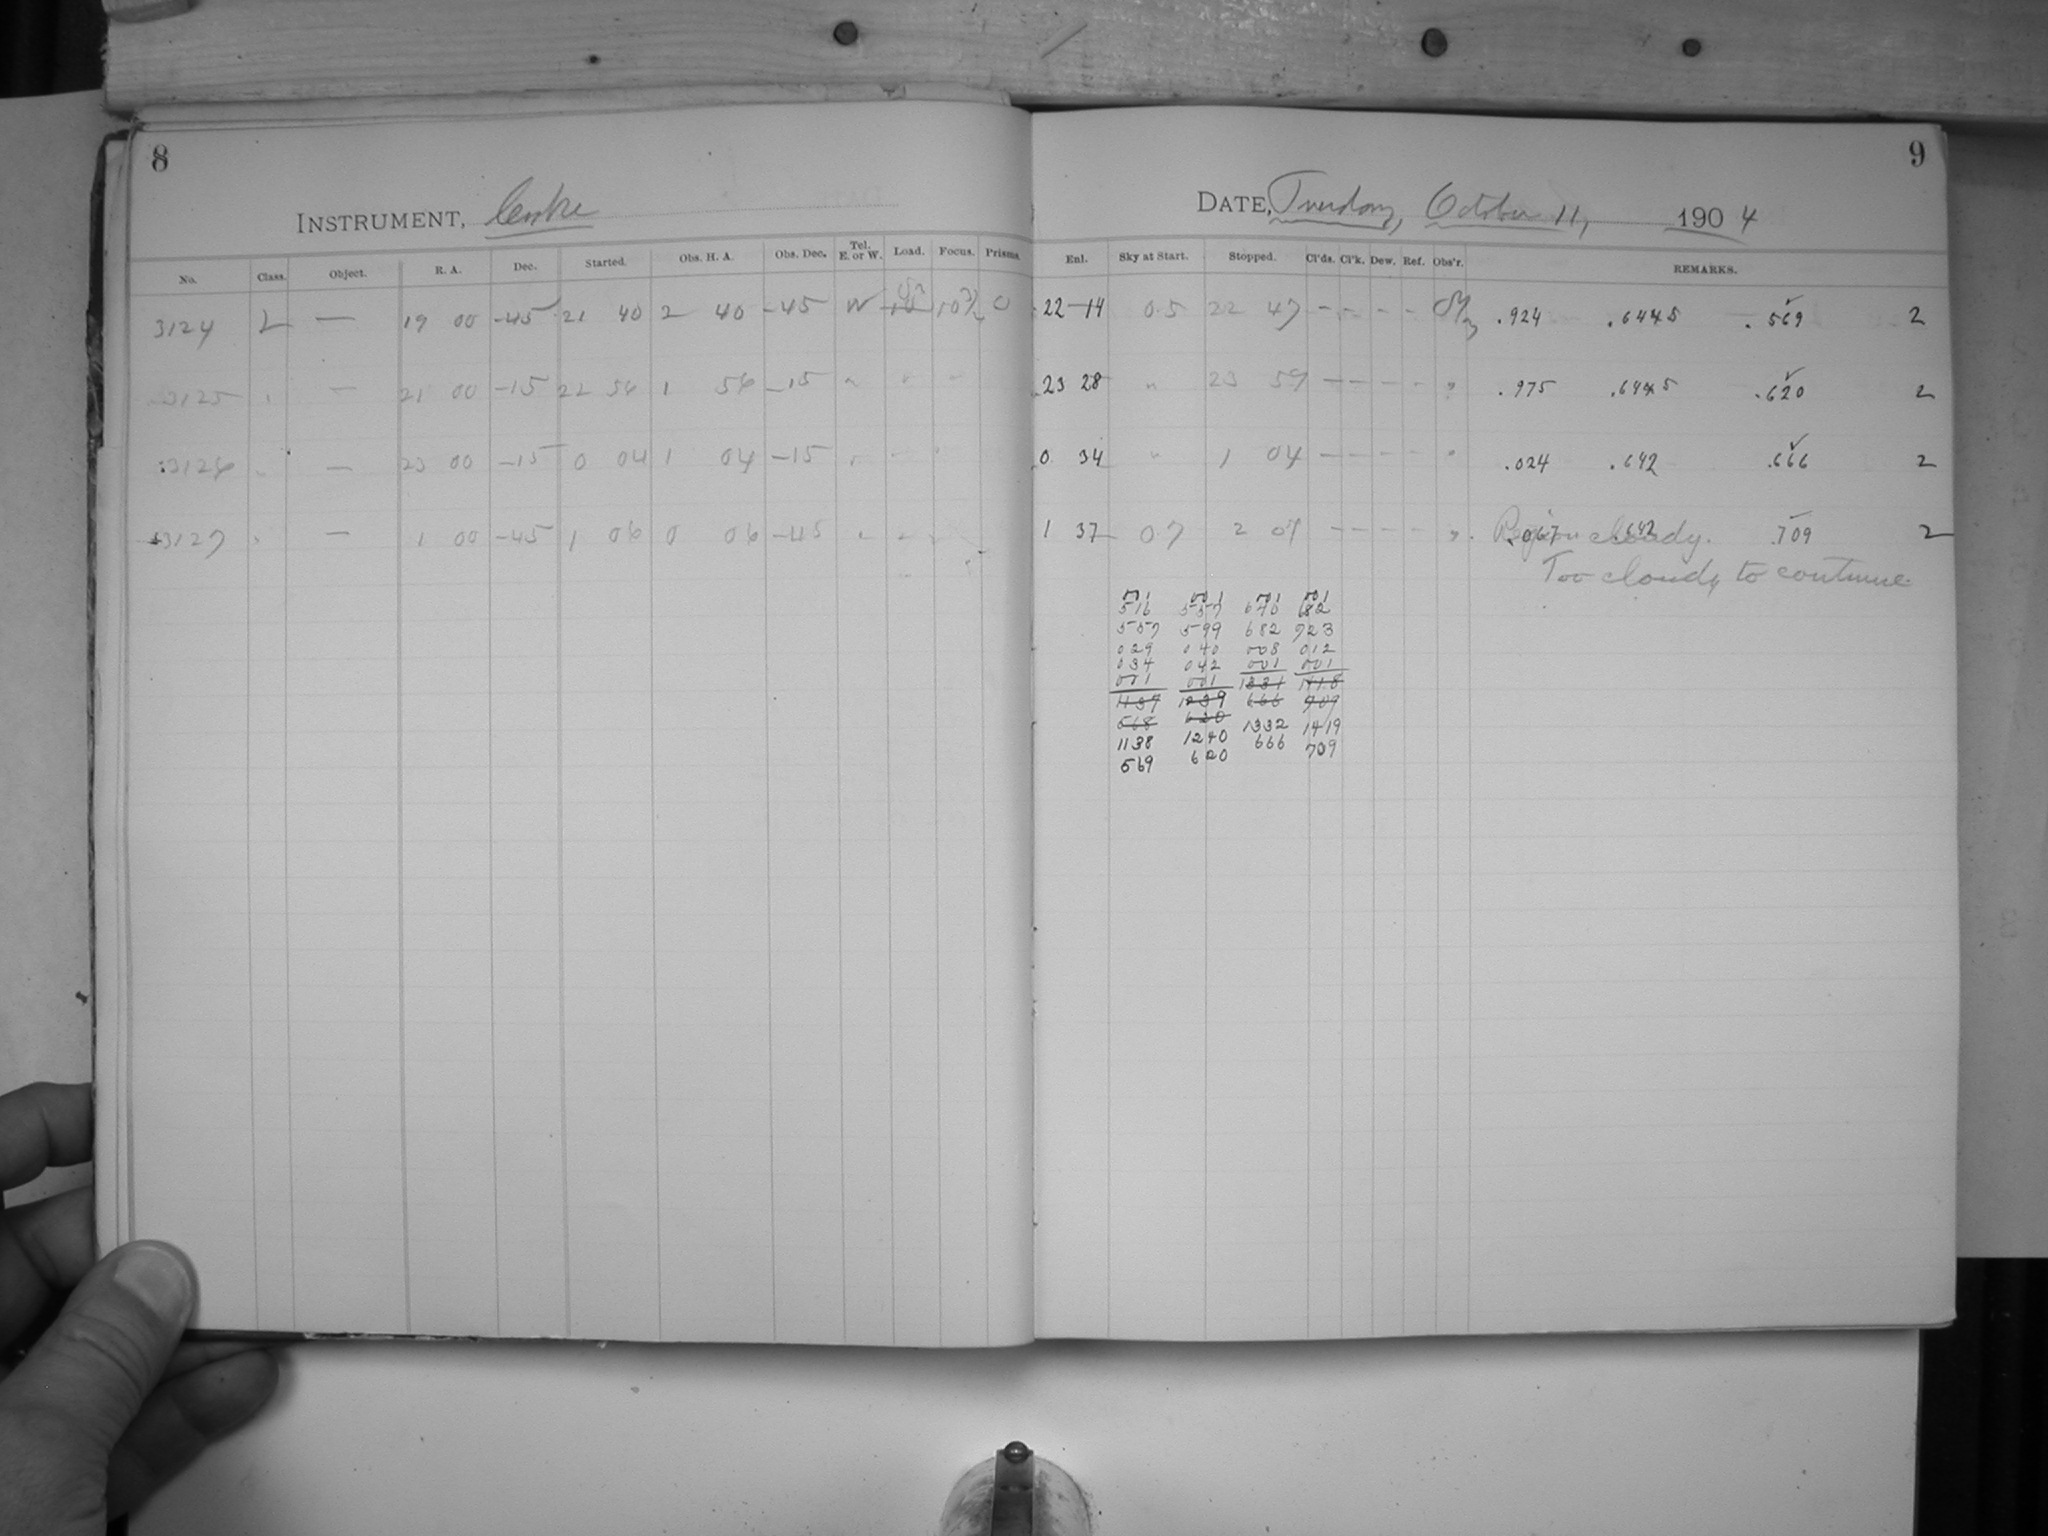 8
INSTRUMENT, Cooke
No. Class. Object. R. A. Dec. Started. Obs. H. A. Obs. Dec. Tel. E. or W. Load. Focus. Prisms.
3124 L — 19 00 -45 21 40 2 40 -45 W 10 O
3125 " — 21 00 -15 22 56 1 56 -15 " " "
3126 " — 23 00 -15 0 04 1 04 -15 " " "
3127 " — 1 00 -45 1 06 0 06 -45 " " "
9
DATE, Tuesday, October 11, 1904
Enl. Sky at Start. Stopped. Cl'ds. Cl'k. Dew. Ref. Obs'r. REMARKS.
22 14 0.5 22 47 - - - - .924 .6445 .569 2
23 28 " 23 59 - - - - " .975 .6445 .620 2
0 34 " 1 04 - - - - " .024 .642 .666 2
1 37 0.7 2 07 - - - - " Region cloudy. .067 .642 .709 2
Too cloudy to continue
001 001 001 001
516 557 670 682
557 599 682 723
029 040 008 012
034 042 001 001
001 001 1331 1418
1137 1239 666 709
568 620 1332 1419
1138 1240 666 709
569 620